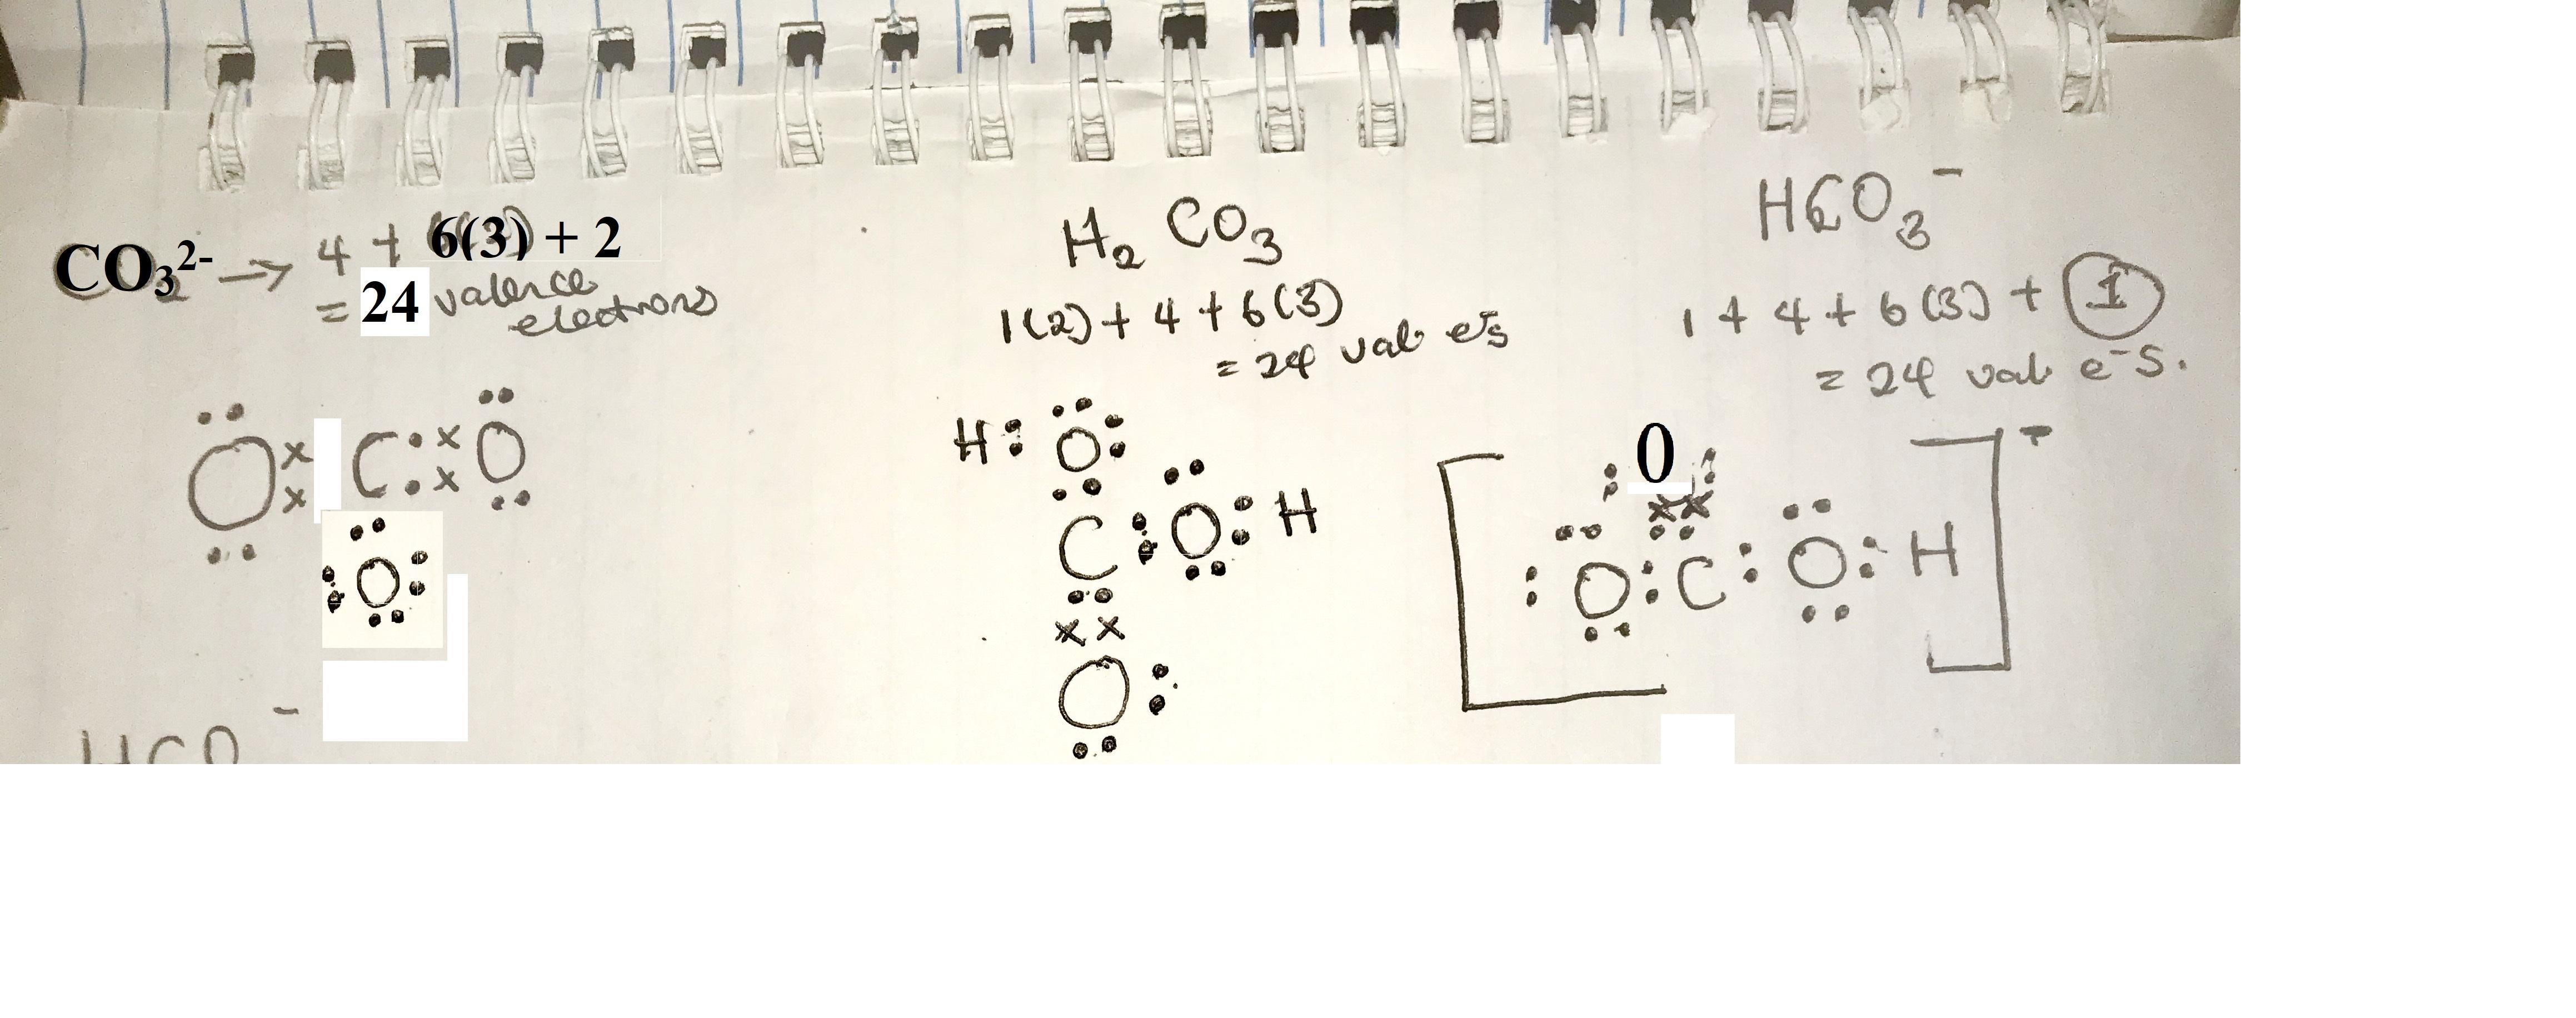 CO₃²⁻ → 4 + 6(3) + 2
= 24 valence
electrons
O C O
O
HCO ⁻
H₂ CO₃
1(2) + 4 + 6(3)
= 24 val e⁻s
H O
C O H
O
HCO₃⁻
1 + 4 + 6(3) + 1
= 24 val e⁻s.
O
[ O C O H ]⁻